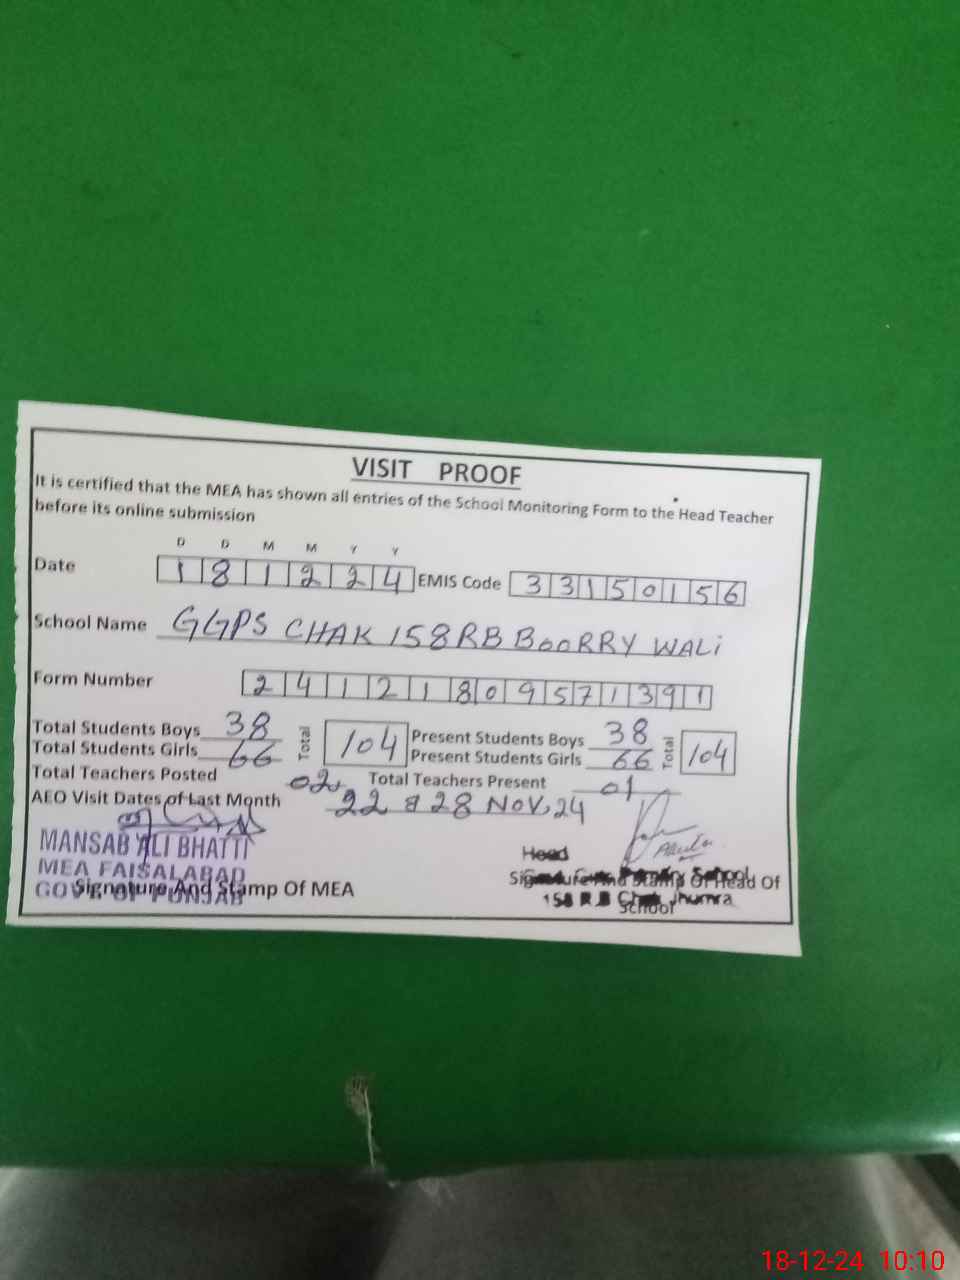 VISIT PROOF
It is certified that the MEA has shown all entries of the School Monitoring Form to the Head Teacher
before its online submission
D D M M Y Y
Date 181224 EMIS Code 33150156
School Name GGPS CHAK 158RB BooRRY WALi
Form Number 241121809571391
Total Students Boys 38 Total 104 Present Students Boys 38 Total 104
Total Students Girls 66 Present Students Girls 66
Total Teachers Posted 02 Total Teachers Present 01
AEO Visit Dates of Last Month 22 & 28 NOV, 24
MANSAB ALI BHATTI
MEA FAISALABAD
GOVT. OF PUNJAB
Signature And Stamp Of MEA
Head
Primary School
Signature And Stamp Of Head Of
158 R.B Chak Jhumra
School
18-12-24 10:10